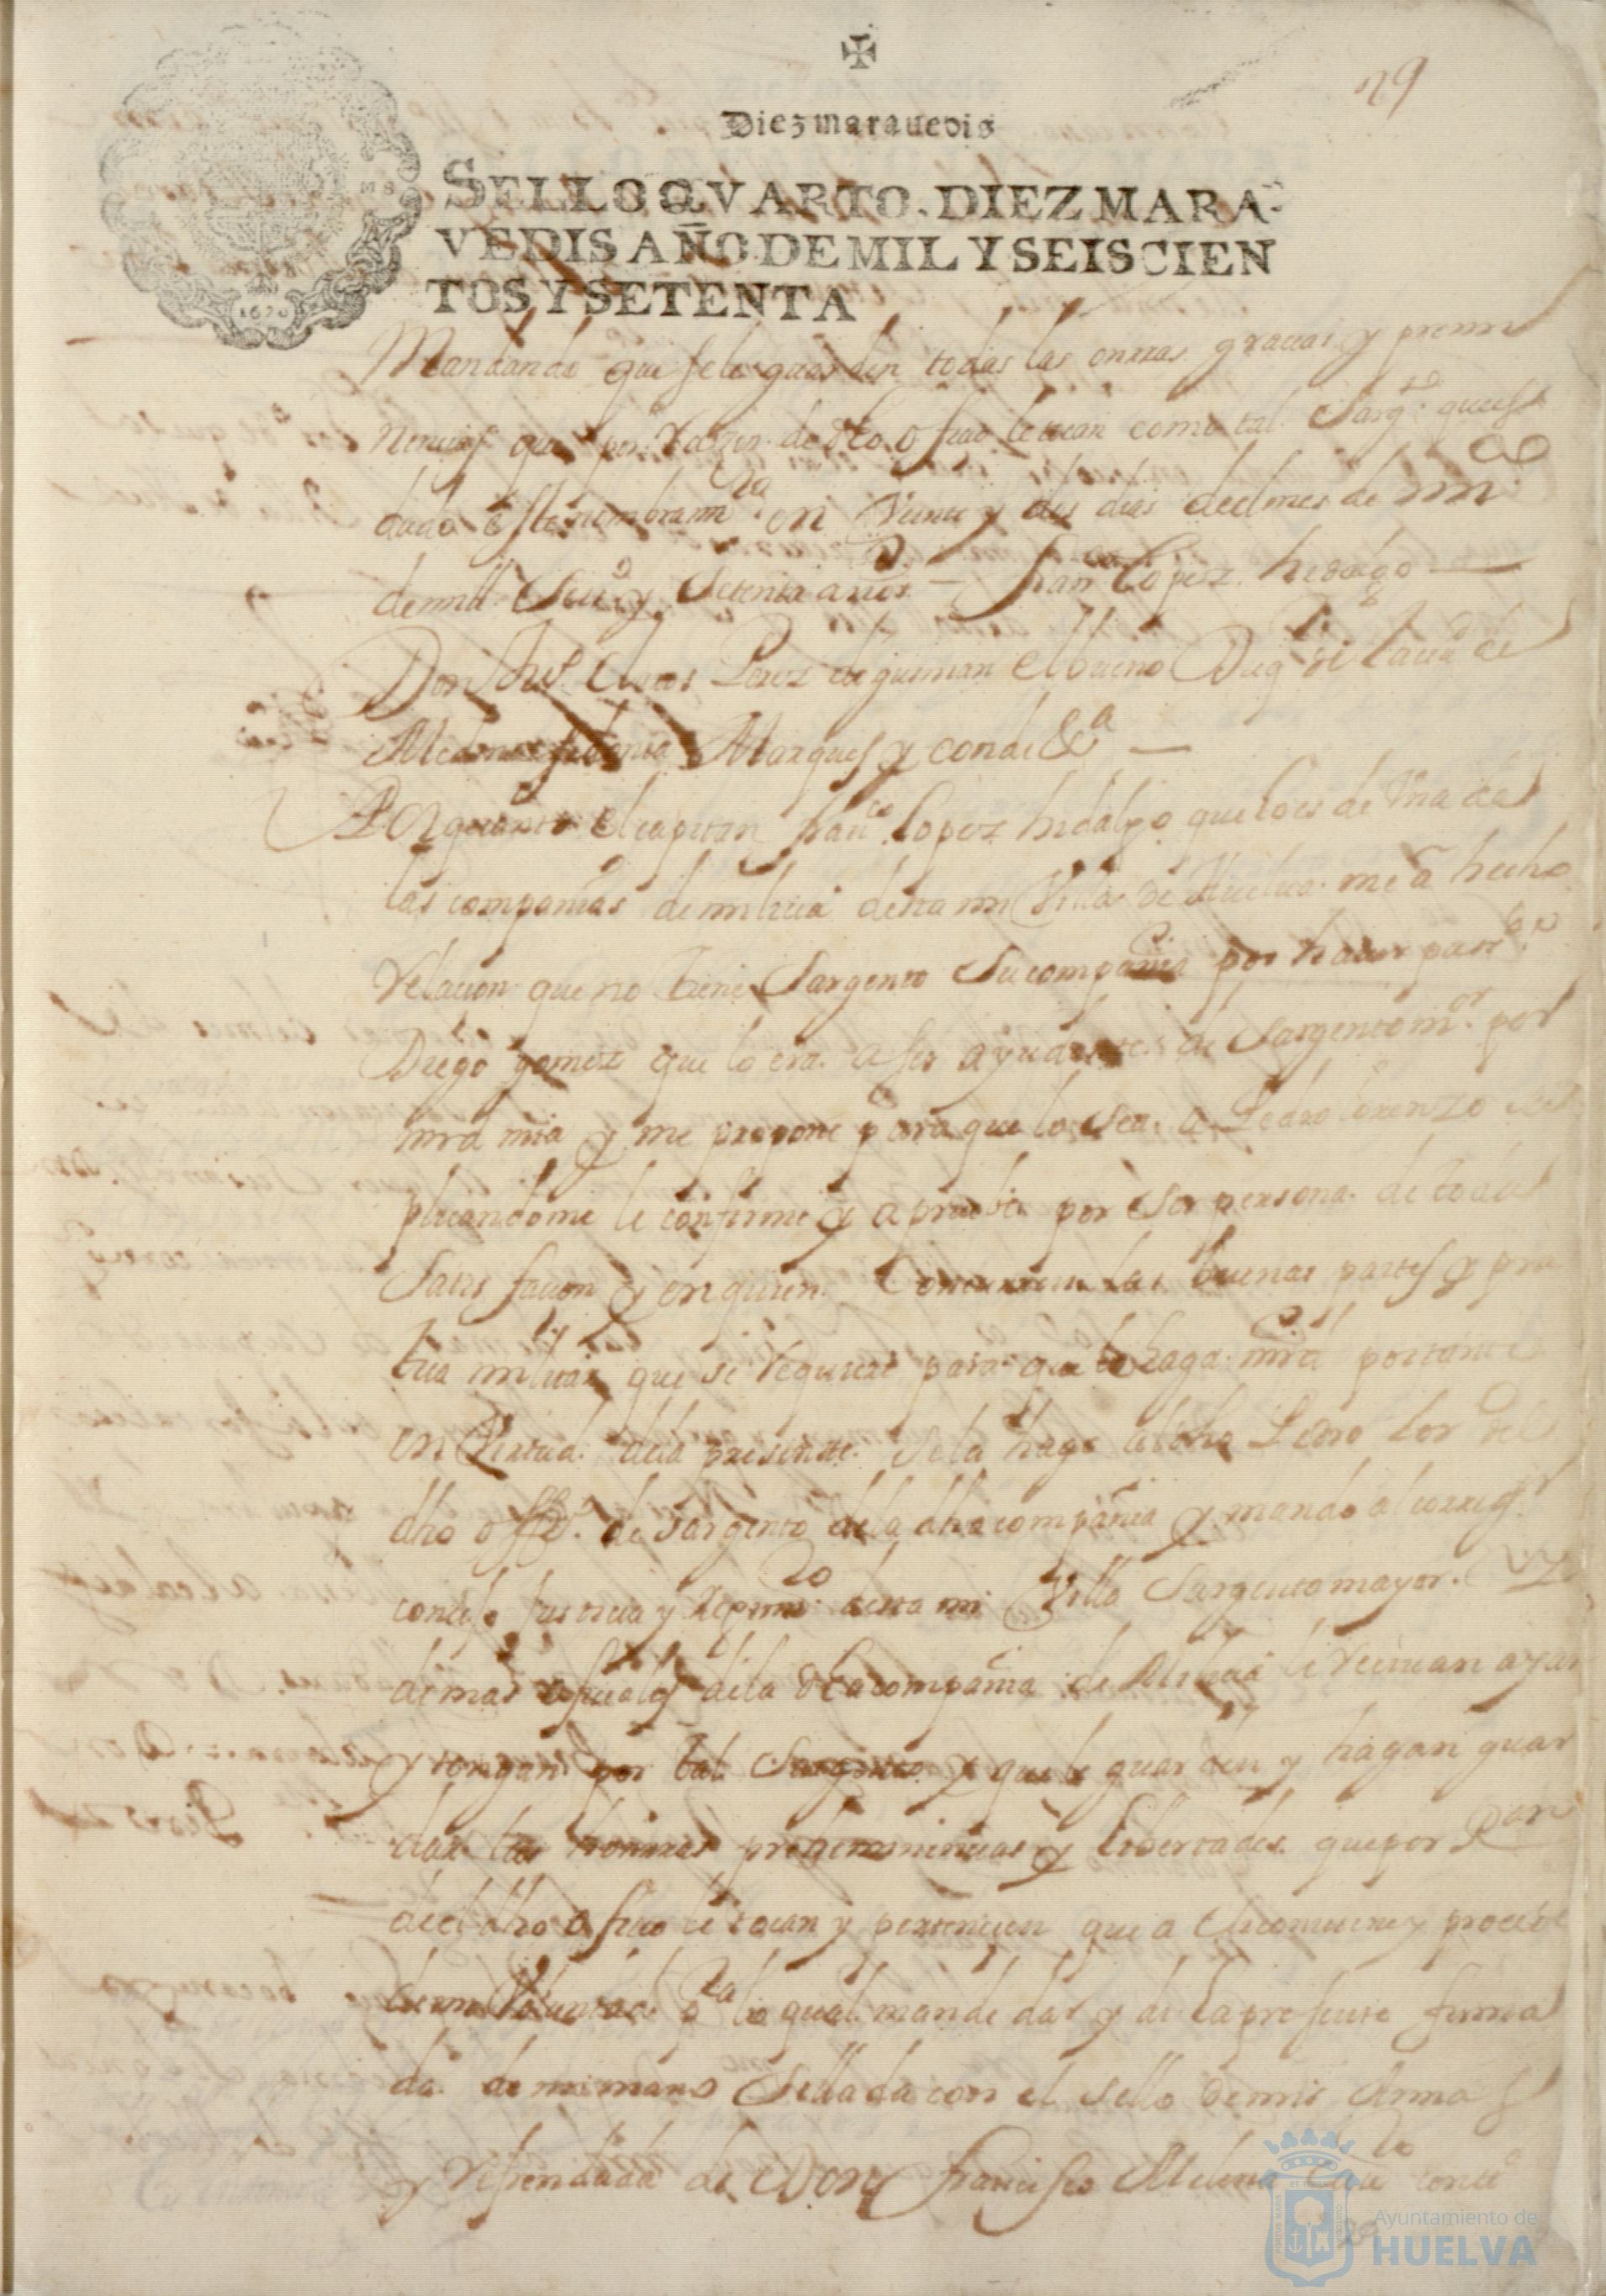 29
Diez maravedis
SELLO QVARTO, DIEZ MARA-
VEDIS AÑO DE MIL Y SEISCIEN
TOS Y SETENTA
1670
Mandando que se le guarden todas las onrras gracias y premi
que por Razon de dho ofiº le tocan como tal Sargto ques
dado este nombramto en Veinte y dos dias del mes de
de mill Seisº y Setenta años — Franco Lopez hidalgo —
Don Perez de guzman el bueno Duq de la ciud de
Medina sidonia Marques y conde &a —
Por quanto el capitan franco Lopez hidalgo que lo es de Una de
las compañias de milicia desta mi Villa de Huelua me a hecho
Relacion que no tiene Sargento Su compañia por hauer pasdo
Diego gomez que lo era a ser ayudante de Sargento mor por
mrd mia y me propone para que lo sea a Pedro lorenzo
plicandome le confirme y apruebe por Ser persona de toda
Satisfacion y en quien Concurren las buenas partes y pra
tica militar que se Requiere para que le haga mrd por tanto
en Virtud de la presente se la hago al dho Pedro Lor del
dho offº de Sargento de la dha compañia y mando al corregr
consejo Justicia y Regimto desta mi Villa Sargento mayor y
demas ofiçiales de la dha compañia de Milicia le Reciuan ayan
y tengan por tal Sargento y que le guarden y hagan guar
dar las honrras preheminencias y libertades que por Raon
de el dho ofiçio le tocan y pertenecen que a Si conuiene y procede
de mi Voluntad pa lo qual mande dar y di la presente firma
da de mi mano Sellada con el sello de mis Armas
y Refrendada de Don Françisco Molina
Ayuntamiento de
HUELVA